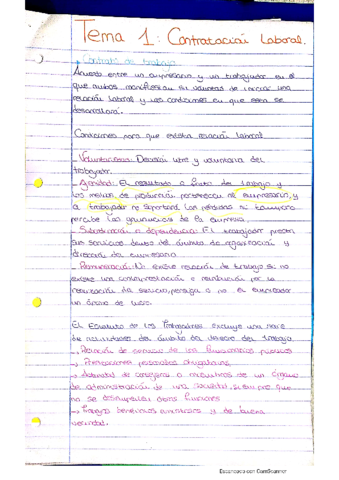 Tema 1: Contratación Laboral.
Contrato de trabajo
Acuerdo entre un empresario y un trabajador en el
que ambos manifiestan su voluntad de iniciar una
relación laboral y las condiciones en que esta se
desarrollará.
Condiciones para que exista relación laboral
- Voluntariedad: Decisión libre y voluntaria del
trabajador.
- Ajenidad: El resultado o fruto del trabajo y
los medios de producción pertenecen al empresario, y
el trabajador no soportará las pérdidas ni tampoco
percibe las ganancias de la empresa.
- Subordinación o dependencia: El trabajador presta
sus servicios dentro del ámbito de organización y
dirección del empresario
- Remuneración: No existe relación de trabajo si no
existe una contraprestación o retribución por la
realización del servicio, persiga o no el empleador
un ánimo de lucro.
El Estatuto de los Trabajadores excluye una serie
de actividades del ámbito del derecho del trabajo
→ Relación de servicio de los funcionarios públicos
→ Prestaciones personales obligatorias
→ Actividad de consejeros o miembros de un órgano
de administración de una sociedad, siempre que
no se desempeñen otras funciones
→ Trabajos benévolos, amistosos y de buena
vecindad.
Escaneado con CamScanner